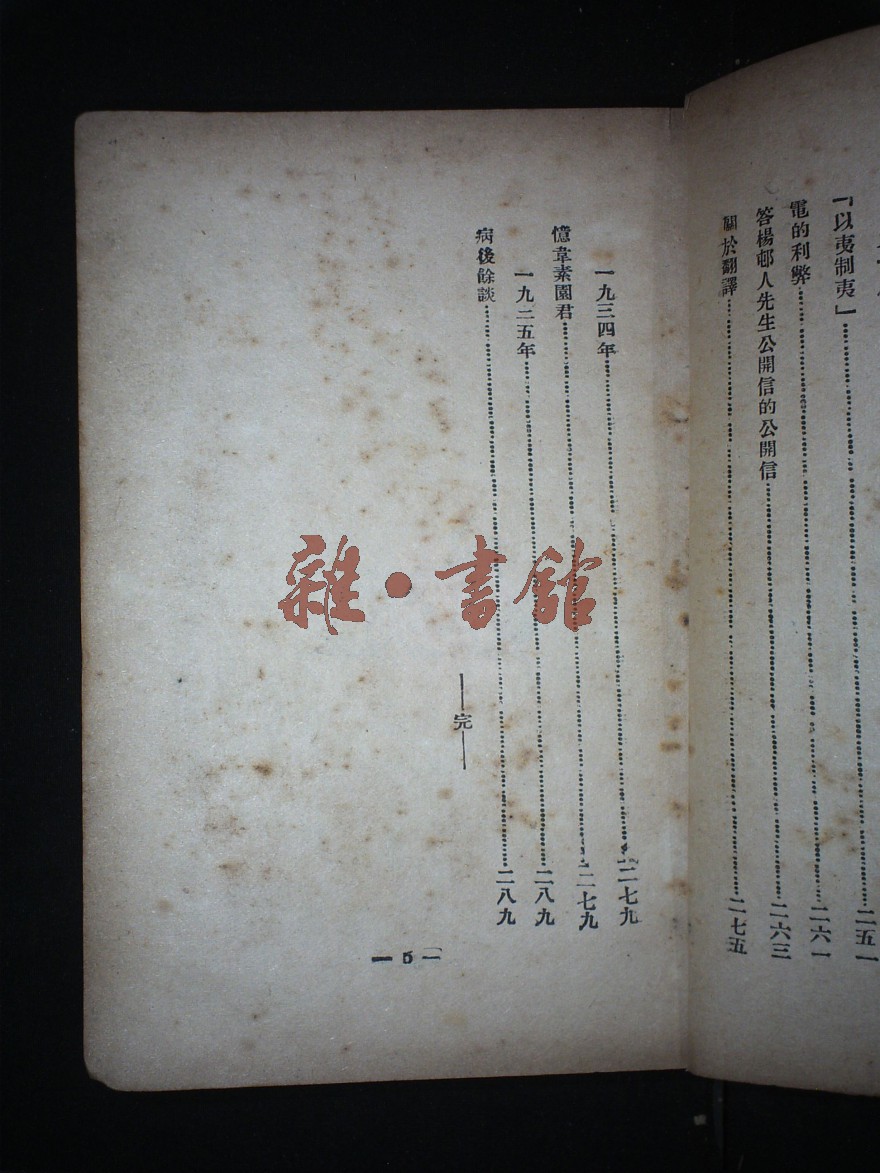 「以夷制夷」……二五一
電的利弊……二六一
答楊邨人先生公開信的公開信……二六三
關於翻譯……二七五
一九三四年……二七九
憶韋素園君……二七九
一九二五年……二八九
病後餘談……二八九
—完—
— 5 —
雜·書館